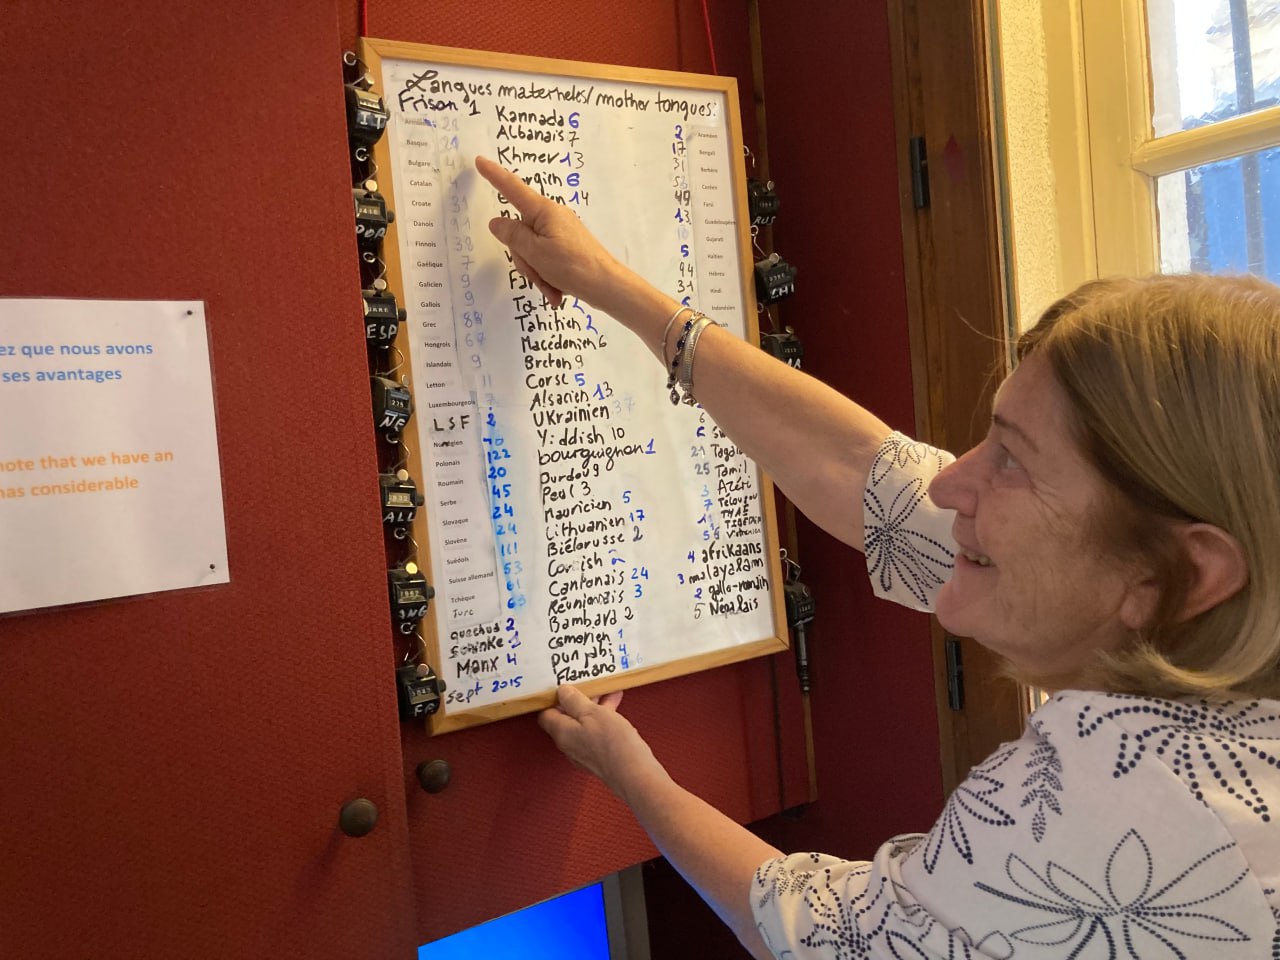 ez que nous avons
ses avantages
note that we have an
has considerable
Langues maternelles/mother tongues:
Frison 1
28
Basque 21
Bulgare 4
Catalan
Croate 31
Danois 91
Finnois 38
Gaélique 7
Galicien 9
Gallois 9
Grec 88
Hongrois 67
Islandais 9
Letton 11
Luxembourgeois 7
LSF 2
Norvégien 70
Polonais 122
Roumain 20
Serbe 45
Slovaque 24
Slovène 24
Suédois 111
Suisse allemand 53
Tchèque 61
Turc 63
quechua 2
soninke 1
Manx 4
Sept 2015
Kannada 6
Albanais 7
Khmer 13
6
14
Tahitien 2
Macédonien 6
Breton 9
Corse 5
Alsacien 13
Ukrainien 37
Yiddish 10
bourguignon 1
Ourdou 9
Peul 3
Mauricien 5
Lithuanien 17
Biélorusse 2
Cornish 2
Cantonais 24
Réunionnais 3
Bambara 2
comorien 1
punjabi 4
Flamand 9
2 Araméen
17 Bengali
31 Berbère
Coréen
49 Farsi
13 Guadeloupéen
10 Gujarati
5 Haïtien
94 Hébreu
31 Hindi
Indonésien
6
21
25 Tamil
3 Azéri
7
4 afrikaans
3 malayalam
2 gallo-romain
5 Népalais
POR
ESP
NE
ALL
ANG
FR
RUS
CHI